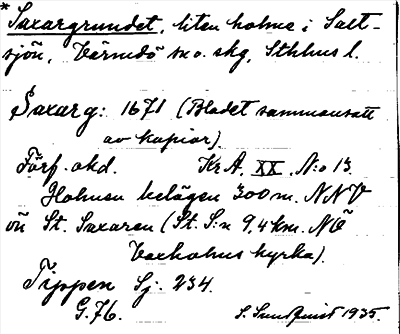 *Saxargrundet, liten holme i Salt-
sjön, Värmdö sn o. skg, Sthlms l.
Saxarg: 1671 (Bladet sammansatt
av kopior).
Förf. okd. Kr.A. XX. N:o 13.
Holmen belägen 300 m. NNV
ön St. Saxaren (St. S:n 9,4 km. NÖ
Vaxholms kyrka).
Tippen Sj: 234.
G.76. S. Sundquist 1935.